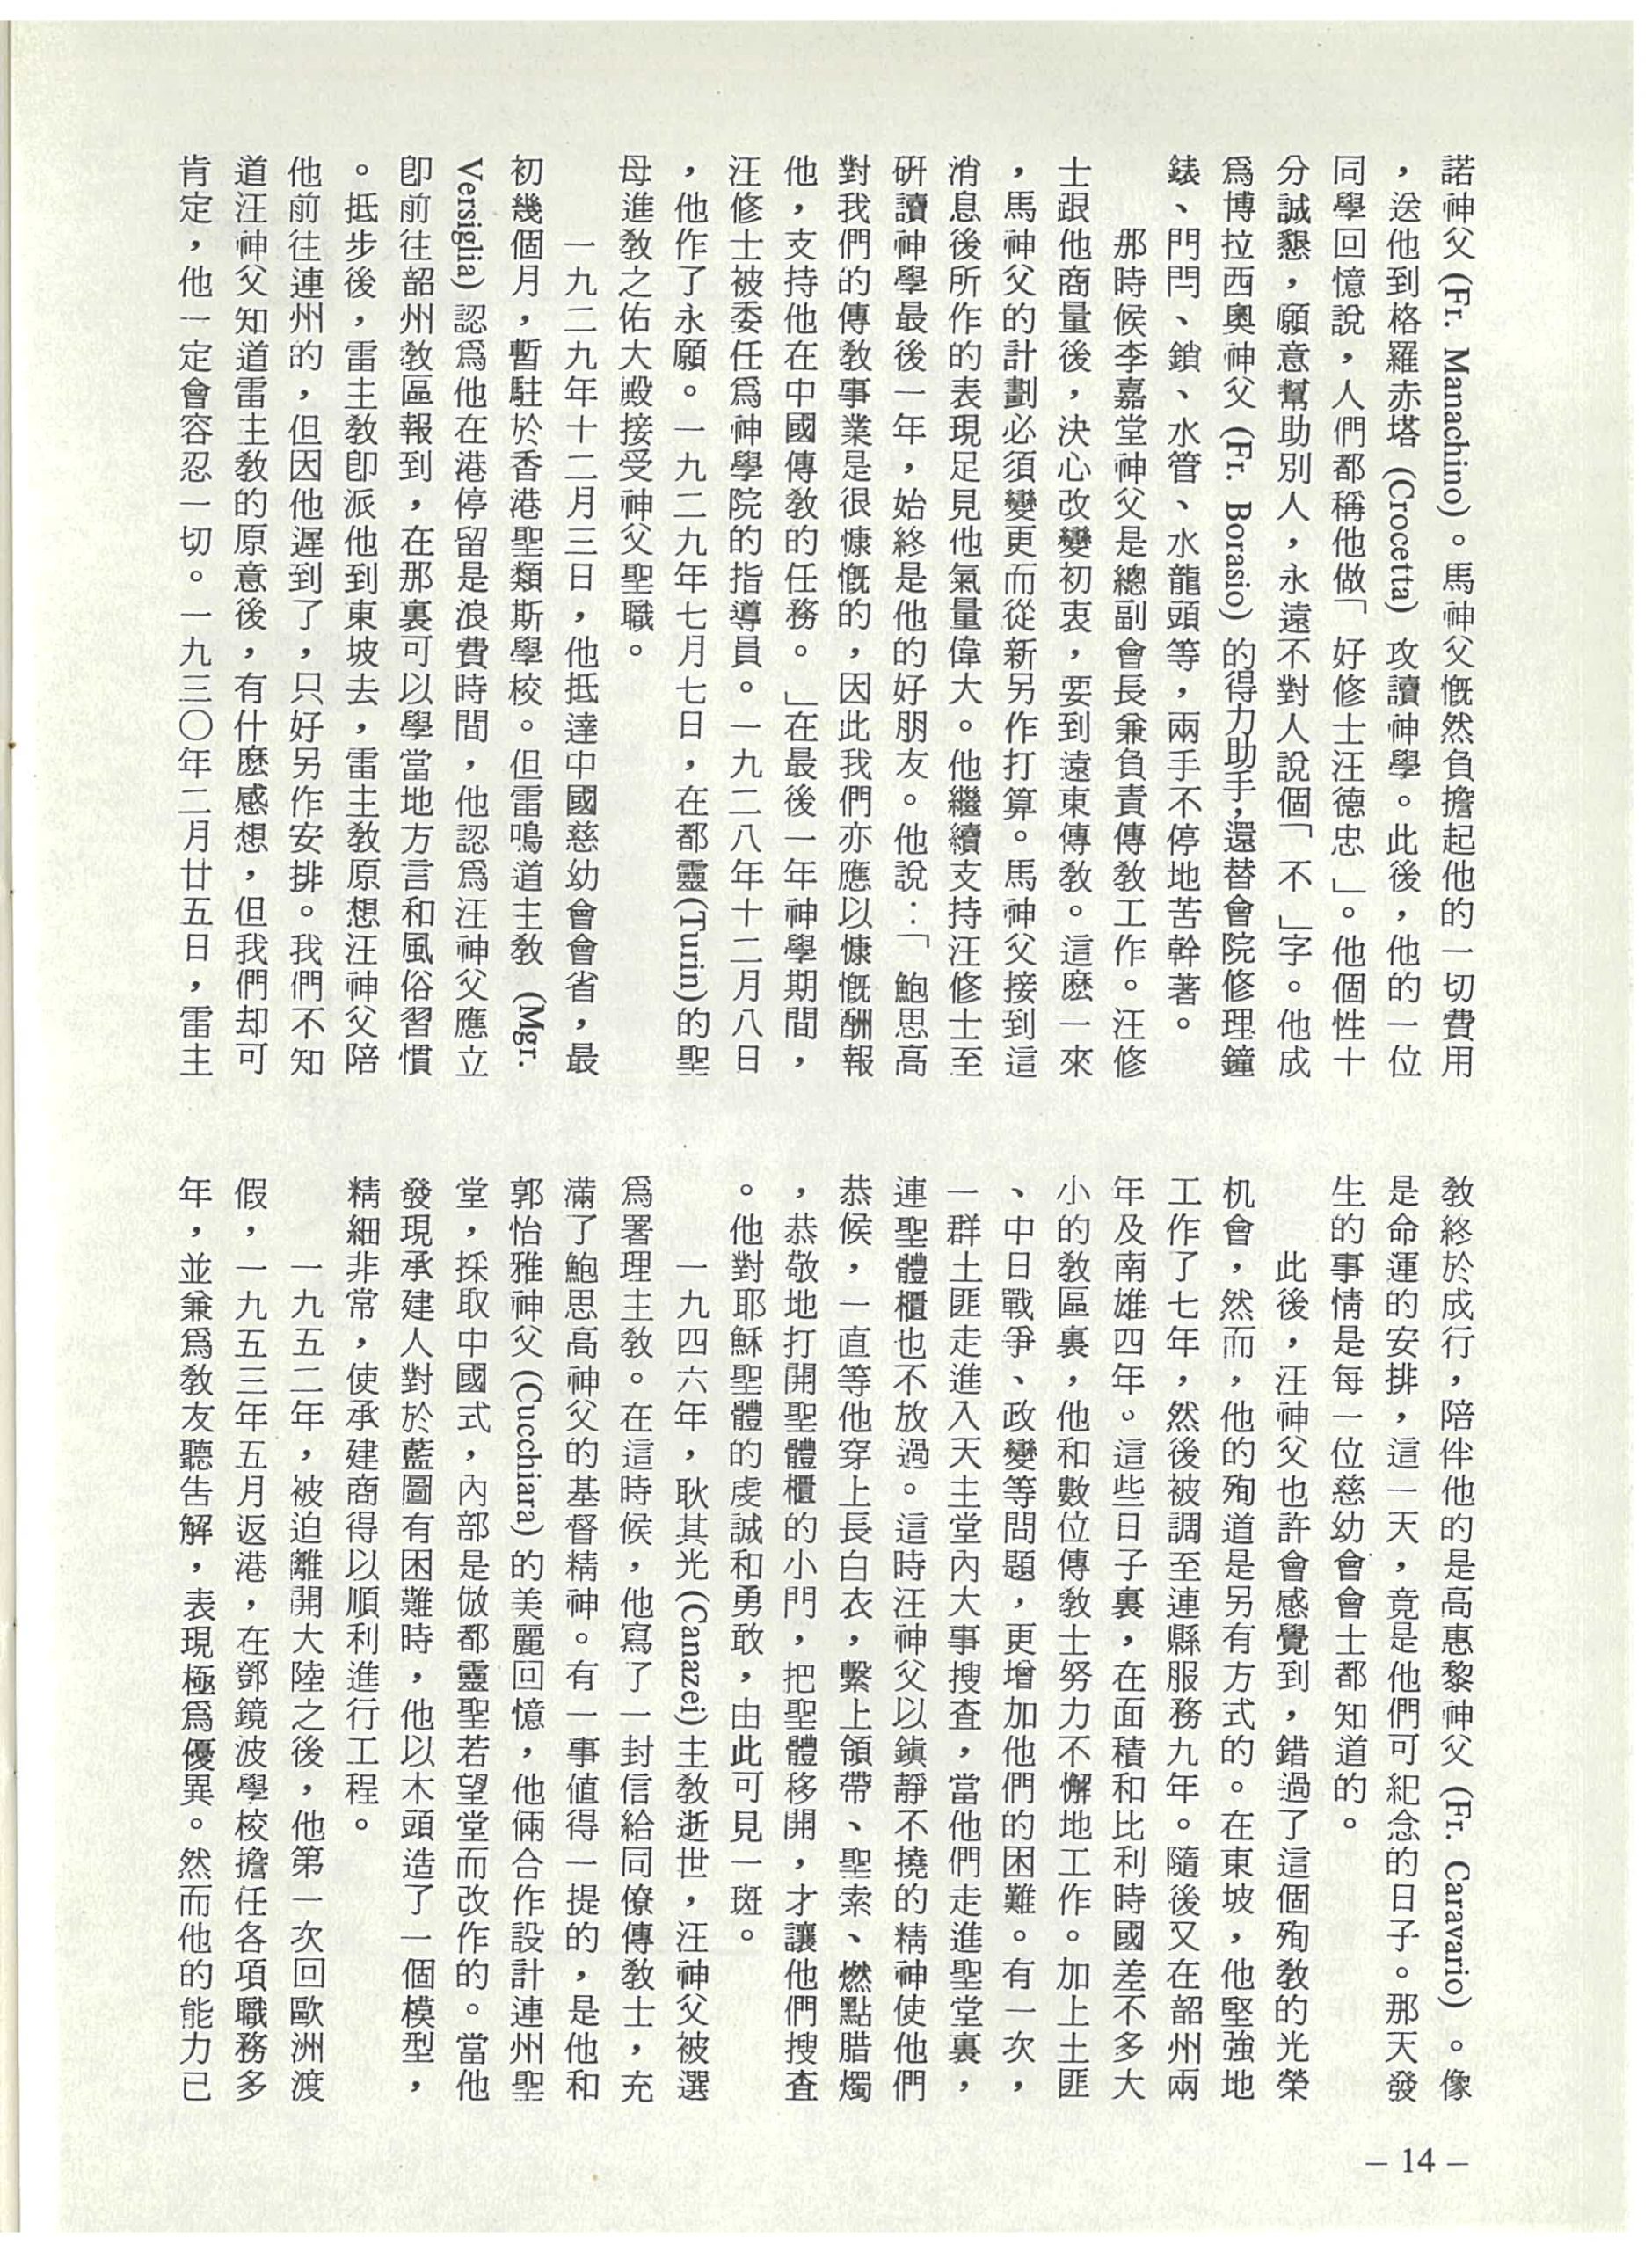 諾神父 (Fr. Manachino)。馬神父慨然負擔起他的一切費用
，送他到格羅赤塔 (Crocetta) 攻讀神學。此後，他的一位
同學回憶說，人們都稱他做「好修士汪德忠」。他個性十
分誠懇，願意幫助別人，永遠不對人說個「不」字。他成
爲博拉西奧神父 (Fr. Borasio) 的得力助手，還替會院修理鐘
錶、門閂、鎖、水管、水龍頭等，兩手不停地苦幹著。
那時候李嘉堂神父是總副會長兼負責傳敎工作。汪修
士跟他商量後，決心改變初衷，要到遠東傳敎。這麽一來
，馬神父的計劃必須變更而從新另作打算。馬神父接到這
消息後所作的表現足見他氣量偉大。他繼續支持汪修士至
硏讀神學最後一年，始終是他的好朋友。他說：「鮑思高
對我們的傳敎事業是很慷慨的，因此我們亦應以慷慨酬報
他，支持他在中國傳敎的任務。」在最後一年神學期間，
汪修士被委任爲神學院的指導員。一九二八年十二月八日
，他作了永願。一九二九年七月七日，在都靈(Turin)的聖
母進敎之佑大殿接受神父聖職。
一九二九年十二月三日，他抵達中國慈幼會會省，最
初幾個月，暫駐於香港聖類斯學校。但雷鳴道主敎 (Mgr.
Versiglia) 認爲他在港停留是浪費時間，他認爲汪神父應立
卽前往韶州敎區報到，在那裏可以學當地方言和風俗習慣
。抵步後，雷主敎卽派他到東坡去，雷主敎原想汪神父陪
他前往連州的，但因他遲到了，只好另作安排。我們不知
道汪神父知道雷主敎的原意後，有什麽感想，但我們却可
肯定，他一定會容忍一切。一九三〇年二月廿五日，雷主
敎終於成行，陪伴他的是高惠黎神父 (Fr. Caravario)。像
是命運的安排，這一天，竟是他們可紀念的日子。那天發
生的事情是每一位慈幼會會士都知道的。
此後，汪神父也許會感覺到，錯過了這個殉敎的光榮
机會，然而，他的殉道是另有方式的。在東坡，他堅強地
工作了七年，然後被調至連縣服務九年。隨後又在韶州兩
年及南雄四年。這些日子裏，在面積和比利時國差不多大
小的敎區裏，他和數位傳敎士努力不懈地工作。加上土匪
、中日戰爭、政變等問題，更增加他們的困難。有一次，
一群土匪走進入天主堂內大事搜查，當他們走進聖堂裏，
連聖體櫃也不放過。這時汪神父以鎭靜不撓的精神使他們
恭候，一直等他穿上長白衣，繫上領帶、聖索、燃點腊燭
，恭敬地打開聖體櫃的小門，把聖體移開，才讓他們搜查
。他對耶穌聖體的虔誠和勇敢，由此可見一斑。
一九四六年，耿其光(Canazei)主敎逝世，汪神父被選
爲署理主敎。在這時候，他寫了一封信給同僚傳敎士，充
滿了鮑思高神父的基督精神。有一事値得一提的，是他和
郭怡雅神父(Cucchiara) 的美麗回憶，他倆合作設計連州聖
堂，採取中國式，內部是倣都靈聖若望堂而改作的。當他
發現承建人對於藍圖有困難時，他以木頭造了一個模型，
精細非常，使承建商得以順利進行工程。
一九五二年，被迫離開大陸之後，他第一次回歐洲渡
假，一九五三年五月返港，在鄧鏡波學校擔任各項職務多
年，並兼爲敎友聽吿解，表現極爲優異。然而他的能力已
— 14 —